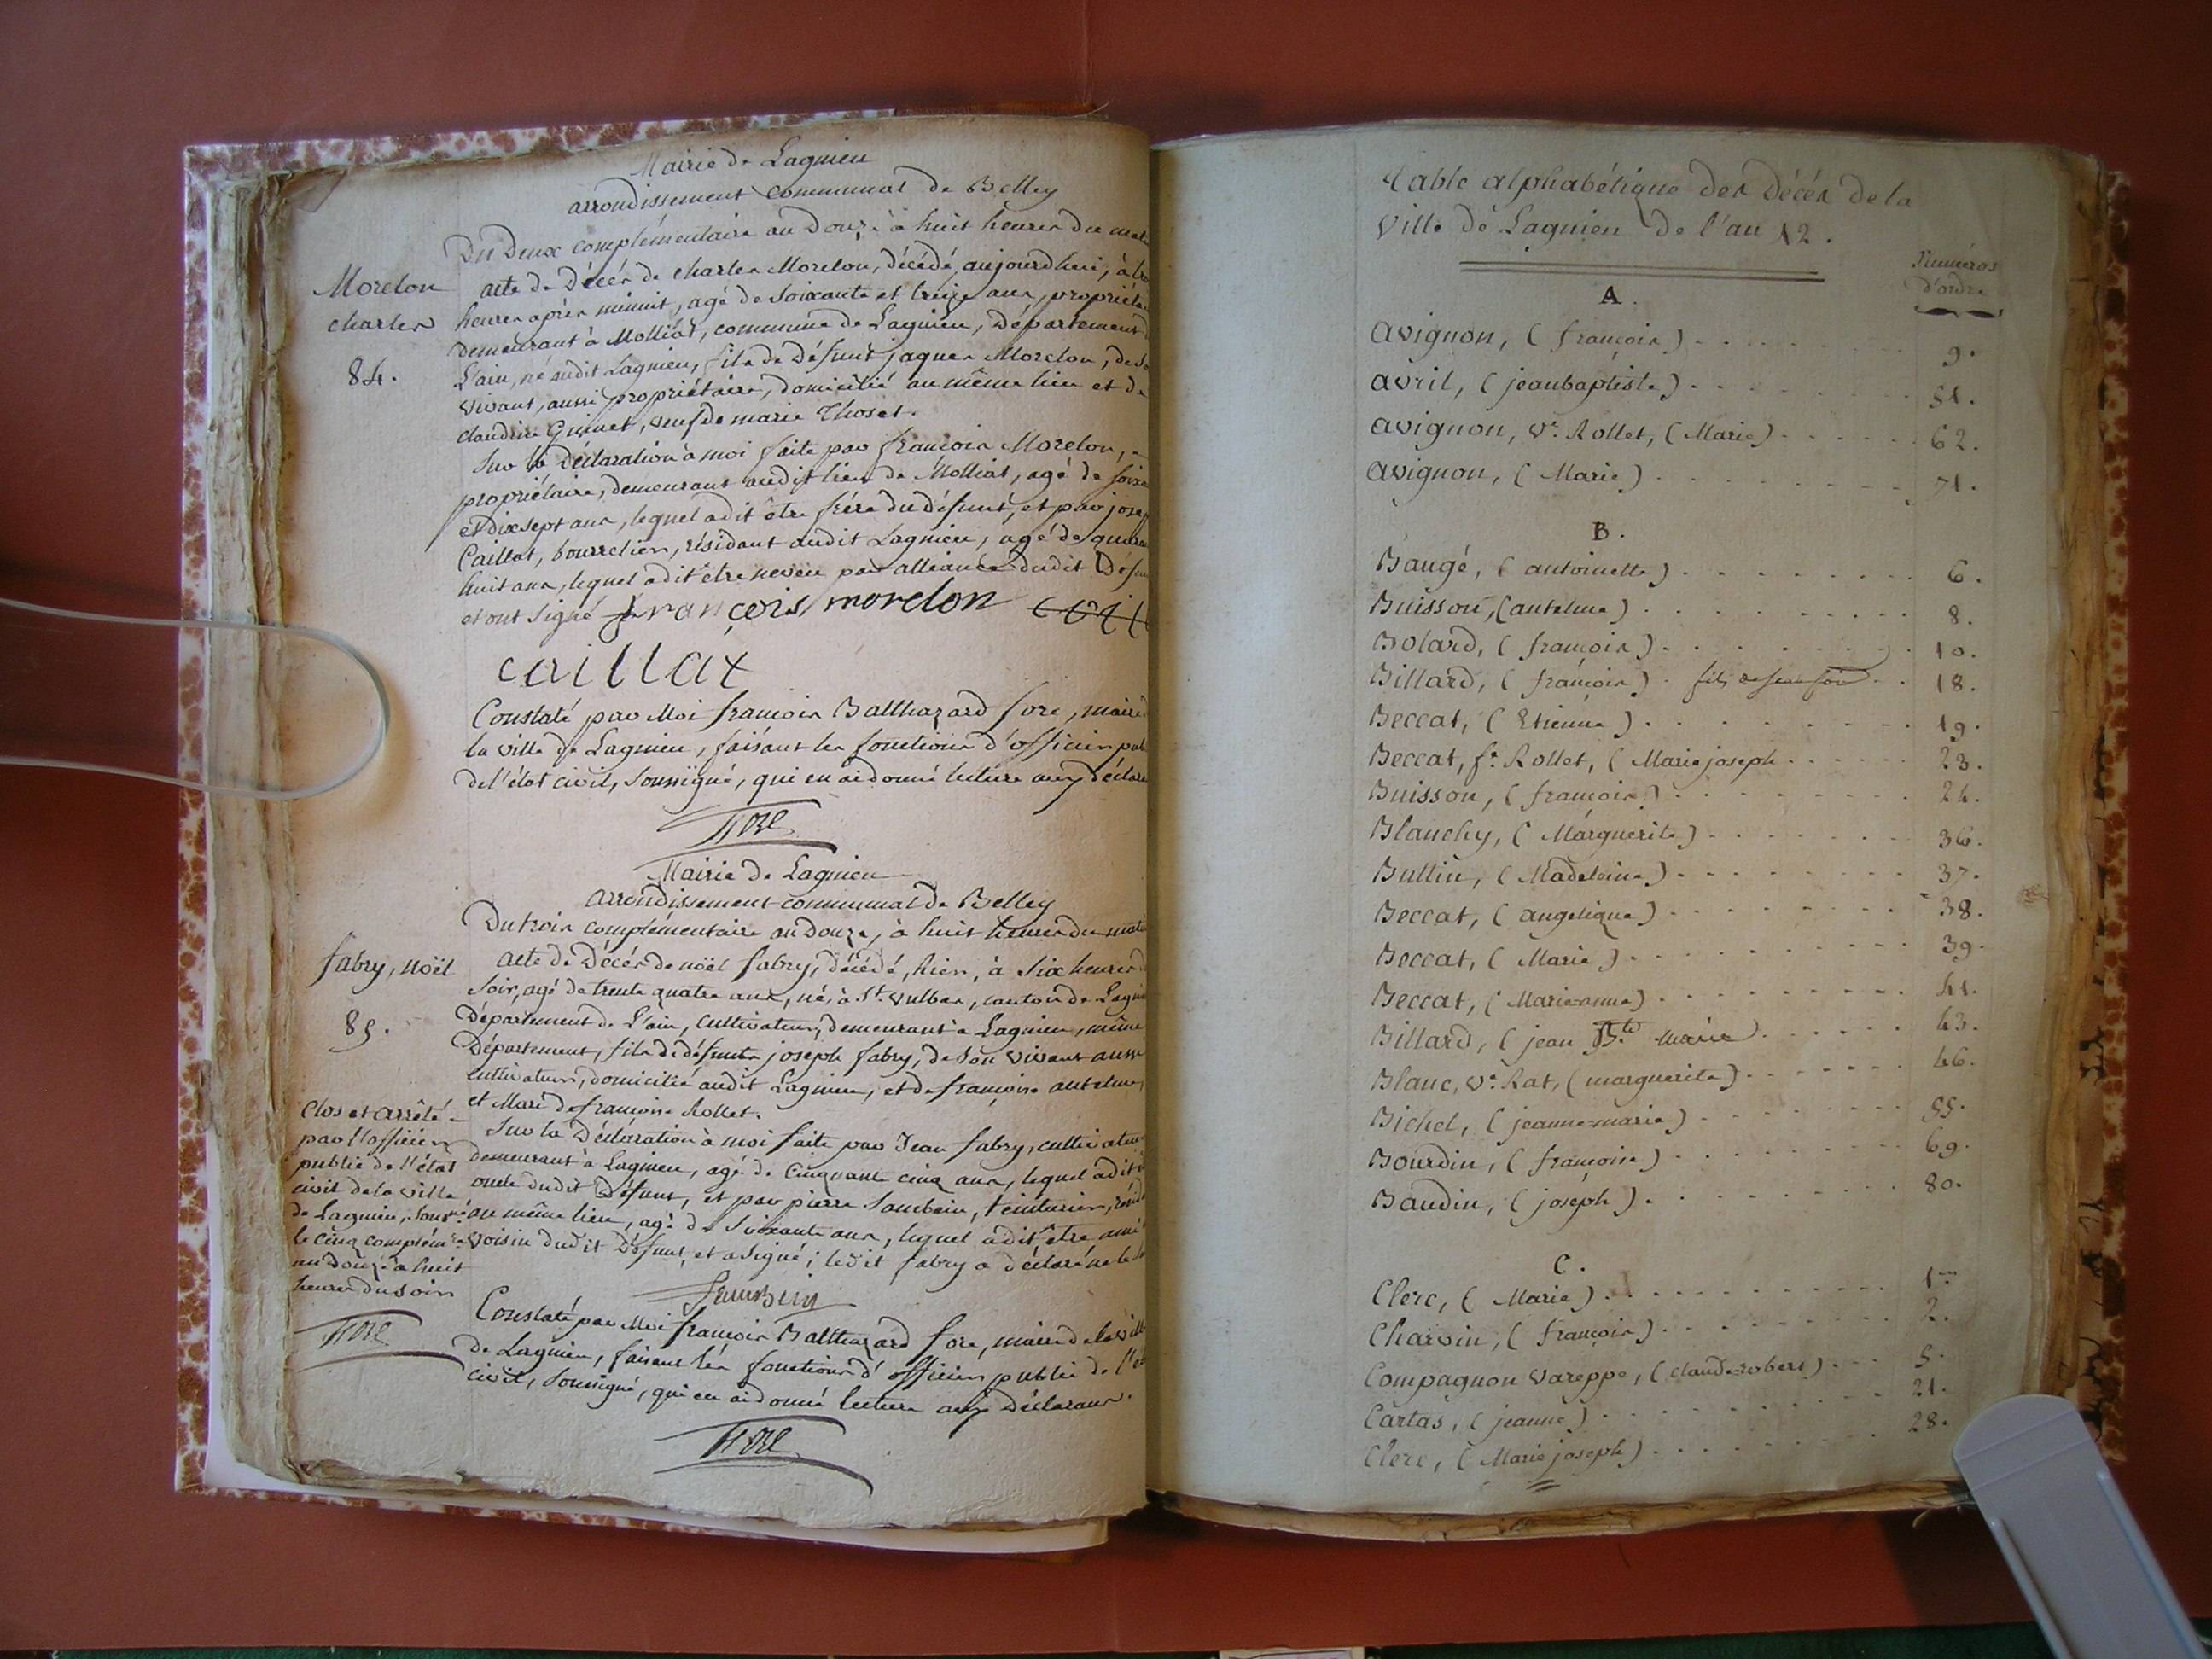 Mairie de Lagnieu
arrondissement communal de Belley
Du Deux complémentaire an Douze à huit heures du mat
Morelon
charles
84.
acte de Décès de charles Morelon, décédé, aujourdhui, à
heures après minuit, agé de soixante et treize ans, propriéta
demeurant à Molliat, commune de Lagnieu, Département
L'ain, né audit Lagnieu, fils de Défunt jaques Morelon, de
vivant, aussi propriétaire, domicilié au même lieu et de
claudine Guinet, veuf de marie Thoset.
Sur la Déclaration à moi faite par françois Morelon,
propriétaire, demeurant audit lieu de Molliat, agé de soixa
et dix sept ans, lequel a dit être frère du défunt, et par jose
Caillat, bourrelier, résidant audit Lagnieu, agé de quara
huit ans, lequel a dit être neveu par alliance dudit Défu
et ont signé françois morelon
caillat
Constaté par Moi françois Balthazard fore, maire
la ville de Lagnieu, faisant les fonctions d'officier pub
de l'état civil, Soussigné, qui en ai donné lecture aux déclara
fore
Mairie de Lagnieu
arrondissement communal de Belley
Du trois complémentaire an douze, à huit heures du mati
fabry, noël
85.
acte de Décès de noël fabry, décédé, hier, à Six heures d
Soir, agé de trente quatre ans, né, à St. vulbas, canton de Lagni
Département de L'ain, cultivateur, demeurant à Lagnieu, même
Département, fils de défunts joseph fabry, de Son vivant aussi
cultivateur, domicilié audit Lagnieu, et de françoise antelme,
et Mari de françoise Rollet.
Sur la Déclaration à moi faite par Jean fabry, cultivateur
demeurant à Lagnieu, agé de Cinquante cinq ans, lequel a dit
oncle dudit Défunt, et par pierre Sambein, teinturier, résid
au même lieu, agé de Soixante ans, lequel a dit être ami
voisin dudit Défunt, et a signé; ledit fabry a déclaré ne le
Sambein
Clos et arrêté
par l'officier
public de l'état
civil de la ville
de Lagnieu, Souss.é
le cinq complém.re
an Douze à huit
heures du Soir
fore
Constaté par Moi françois Balthazard fore, maire de la vill
de Lagnieu, faisant les fonctions d'officier public de l'et
civil, Soussigné, qui en ai donné lecture aux Déclarans.
fore
Table alphabétique des Décès de la
Ville de Lagnieu de l'an 12.
Numéros
d'ordre
A.
Avignon, (françois) 9.
avril, (jeanbaptiste) 51.
avignon, Ve. Rollet, (Marie) 62.
avignon, (Marie) 71.
B.
Baugé, (antoinette) 6.
Buisson, (antelme) 8.
Bolard, (françois) 10.
Billard, (françois) 18.
Beccat, (Etienne) 19.
Beccat, fe. Rollet, (Marie joseph 23.
Buisson, (françois) 24.
Blanchy, (Marguerite) 36.
Bullin, (Madeleine) 37.
Beccat, (angelique) 38.
Beccat, (Marie) 39.
Beccat, (Marieanne) 41.
Billard, (jean Bte. marie) 43.
Blanc, Ve. Rat, (marguerite) 46.
Bichel, (jeanne-marie) 55.
Bourdin, (françoise) 69.
Baudin, (joseph) 80.
C.
Clerc, (Marie) 1er
Charvin, (françois) 2.
Compagnon Vareppe, (claude-robert) 5.
Cartas, (jeanne) 21.
Clerc, (Marie joseph) 28.